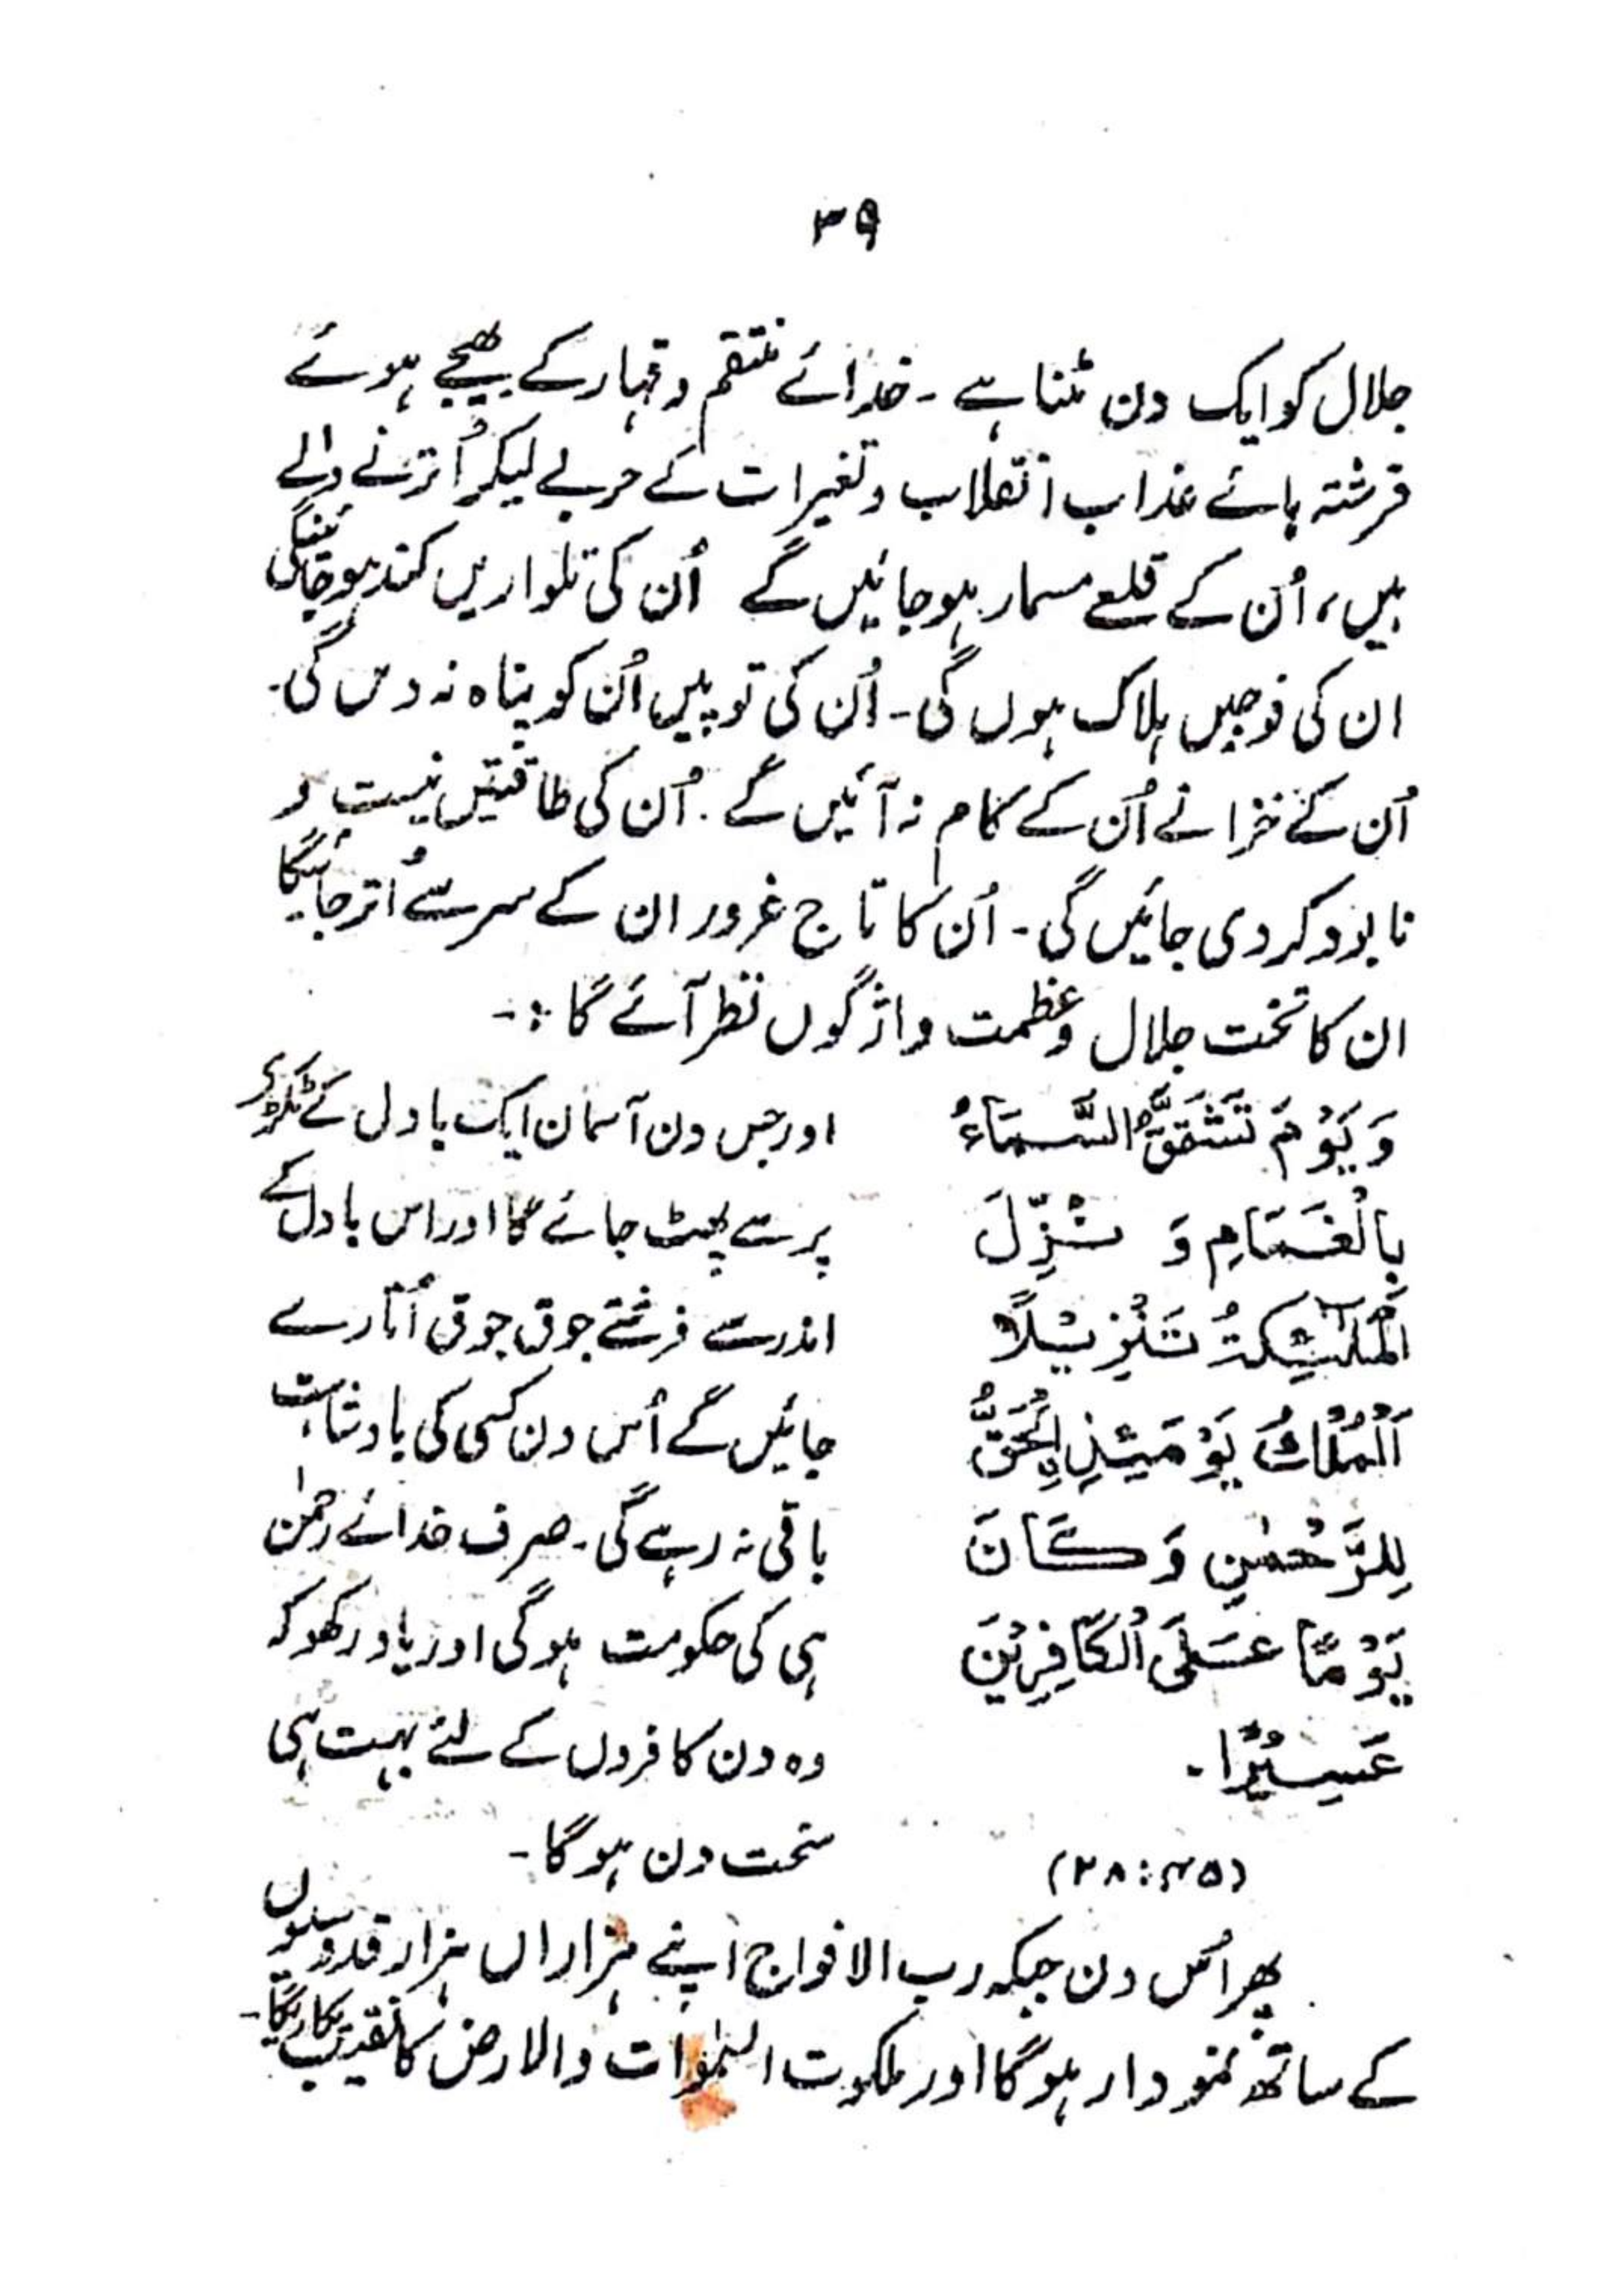 ۳۹
جلال کو ایک دن مٹنا ہے - خدائے منتقم و قہار کے بھیجے ہوئے
فرشتہ ہائے عذاب انقلاب و تغیرات کے حربے لیکر اُترنے والے
ہیں، اُن کے قلعے مسمار ہو جائیں گے اُن کی تلواریں کند ہو جائینگی
ان کی فوجیں ہلاک ہوں گی - اُن کی توپیں اُن کو پناہ نہ دیں گی.
اُن کے خزانے اُن کے کام نہ آئیں گے. اُن کی طاقتیں نیست و
نابود کر دی جائیں گی - اُن کا تاج غرور ان کے سر سے اُتر جائیگا
ان کا تخت جلال و عظمت واژگوں نظر آئے گا :-
وَ يَوْمَ تَشَقَّقُ السَّمَاءُ
بِالْغَمَامِ وَ نُزِّلَ
الْمَلٰٓئِكَةُ تَنْزِيْلًا
اَلْمُلْكُ يَوْمَئِذِ اِلْحَقُّ
لِلرَّحْمٰنِ وَ كَانَ
يَوْمًا عَلَى الْكَافِرِيْنَ
عَسِيْرًا.
(۲۸:۴۵)
اور جس دن آسمان ایک بادل کے ٹکڑے
پر سے پھٹ جائے گا اور اس بادل کے
اندر سے فرشتے جوق جوق اُتارے
جائیں گے اُس دن کسی کی بادشاہت
باقی نہ رہے گی. صرف خدائے رحمٰن
ہی کی حکومت ہوگی اور یاد رکھو کہ
وہ دن کافروں کے لئے بہت ہی
سخت دن ہو گا -
پھر اُس دن جبکہ رب الافواج اپنے ہزاراں ہزار قدوسیوں
کے ساتھ نمودار ہو گا اور ملکوت السمٰوات والارض کا نقیب پکاریگا -